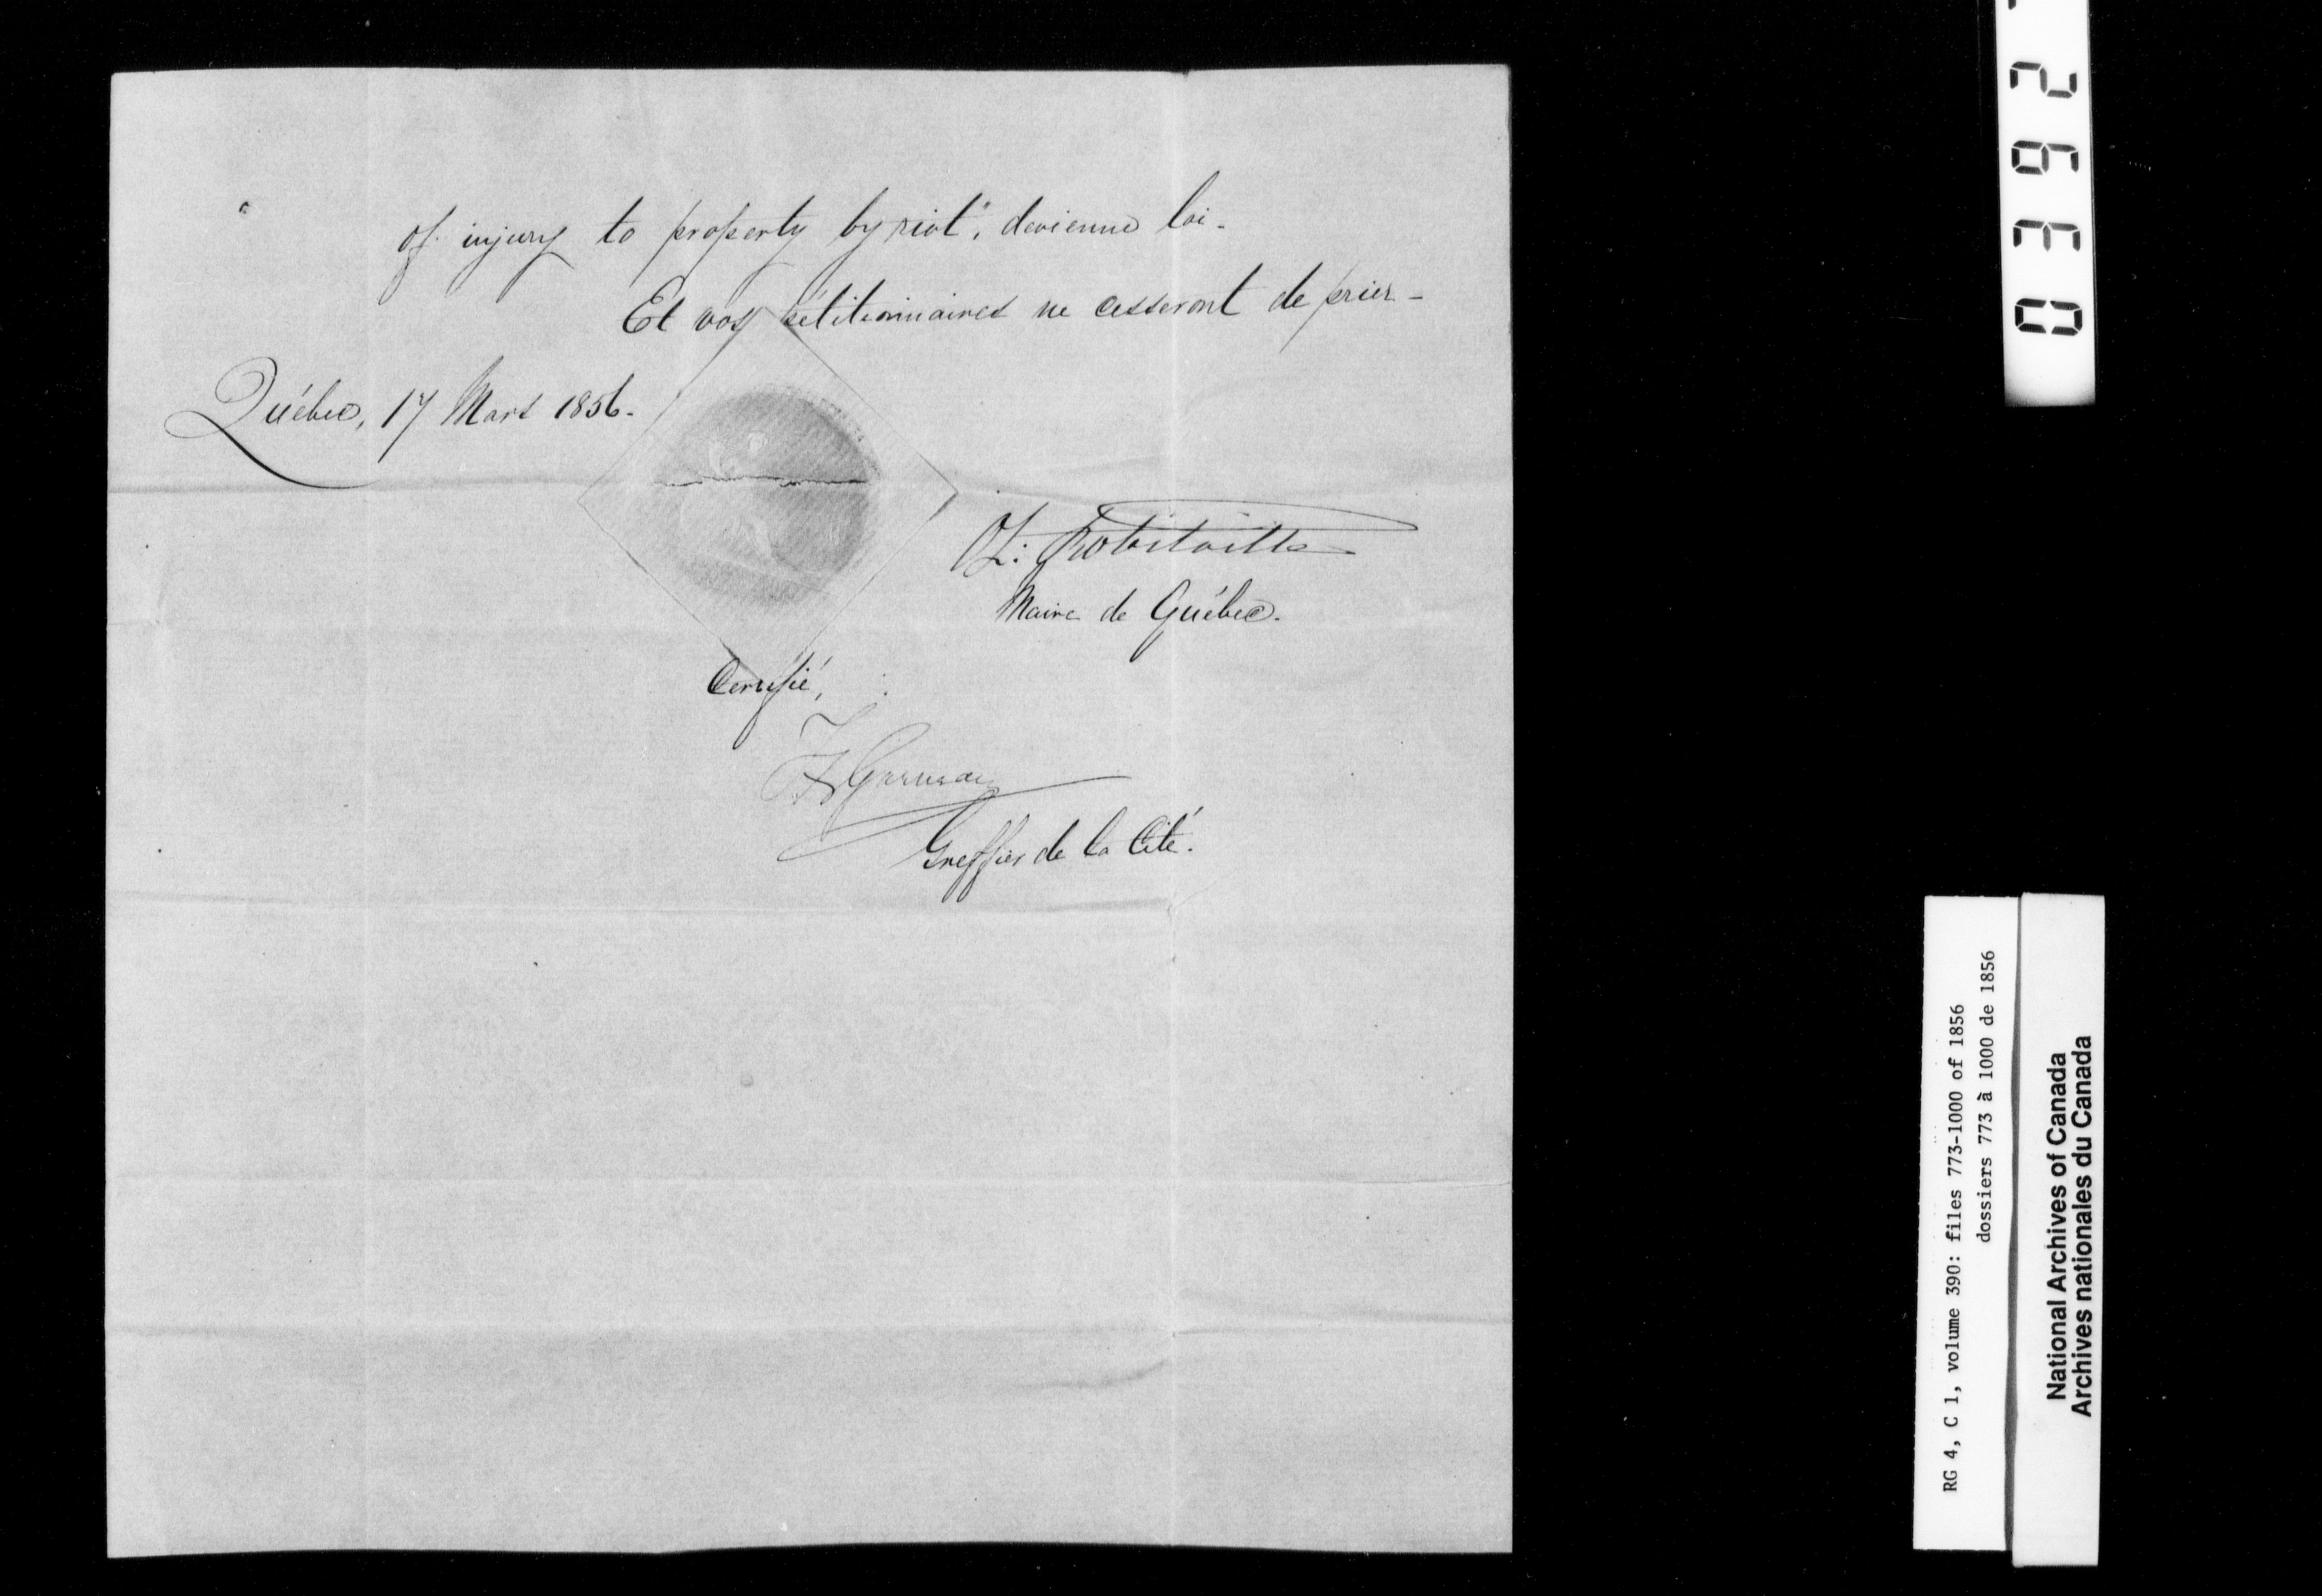 " of injury to property by riot", devienne loi.
Et vos pétitionnaires ne cesseront de prier -
Québec, 17 Mars 1856.
Ol: Robitaille
Maire de Québec.
Certifié,
F Garneau
Greffier de la Cité.
0392
RG 4, C 1, volume 390: files 773-1000 of 1856
dossiers 773 à 1000 de 1856
National Archives of Canada
Archives nationales du Canada